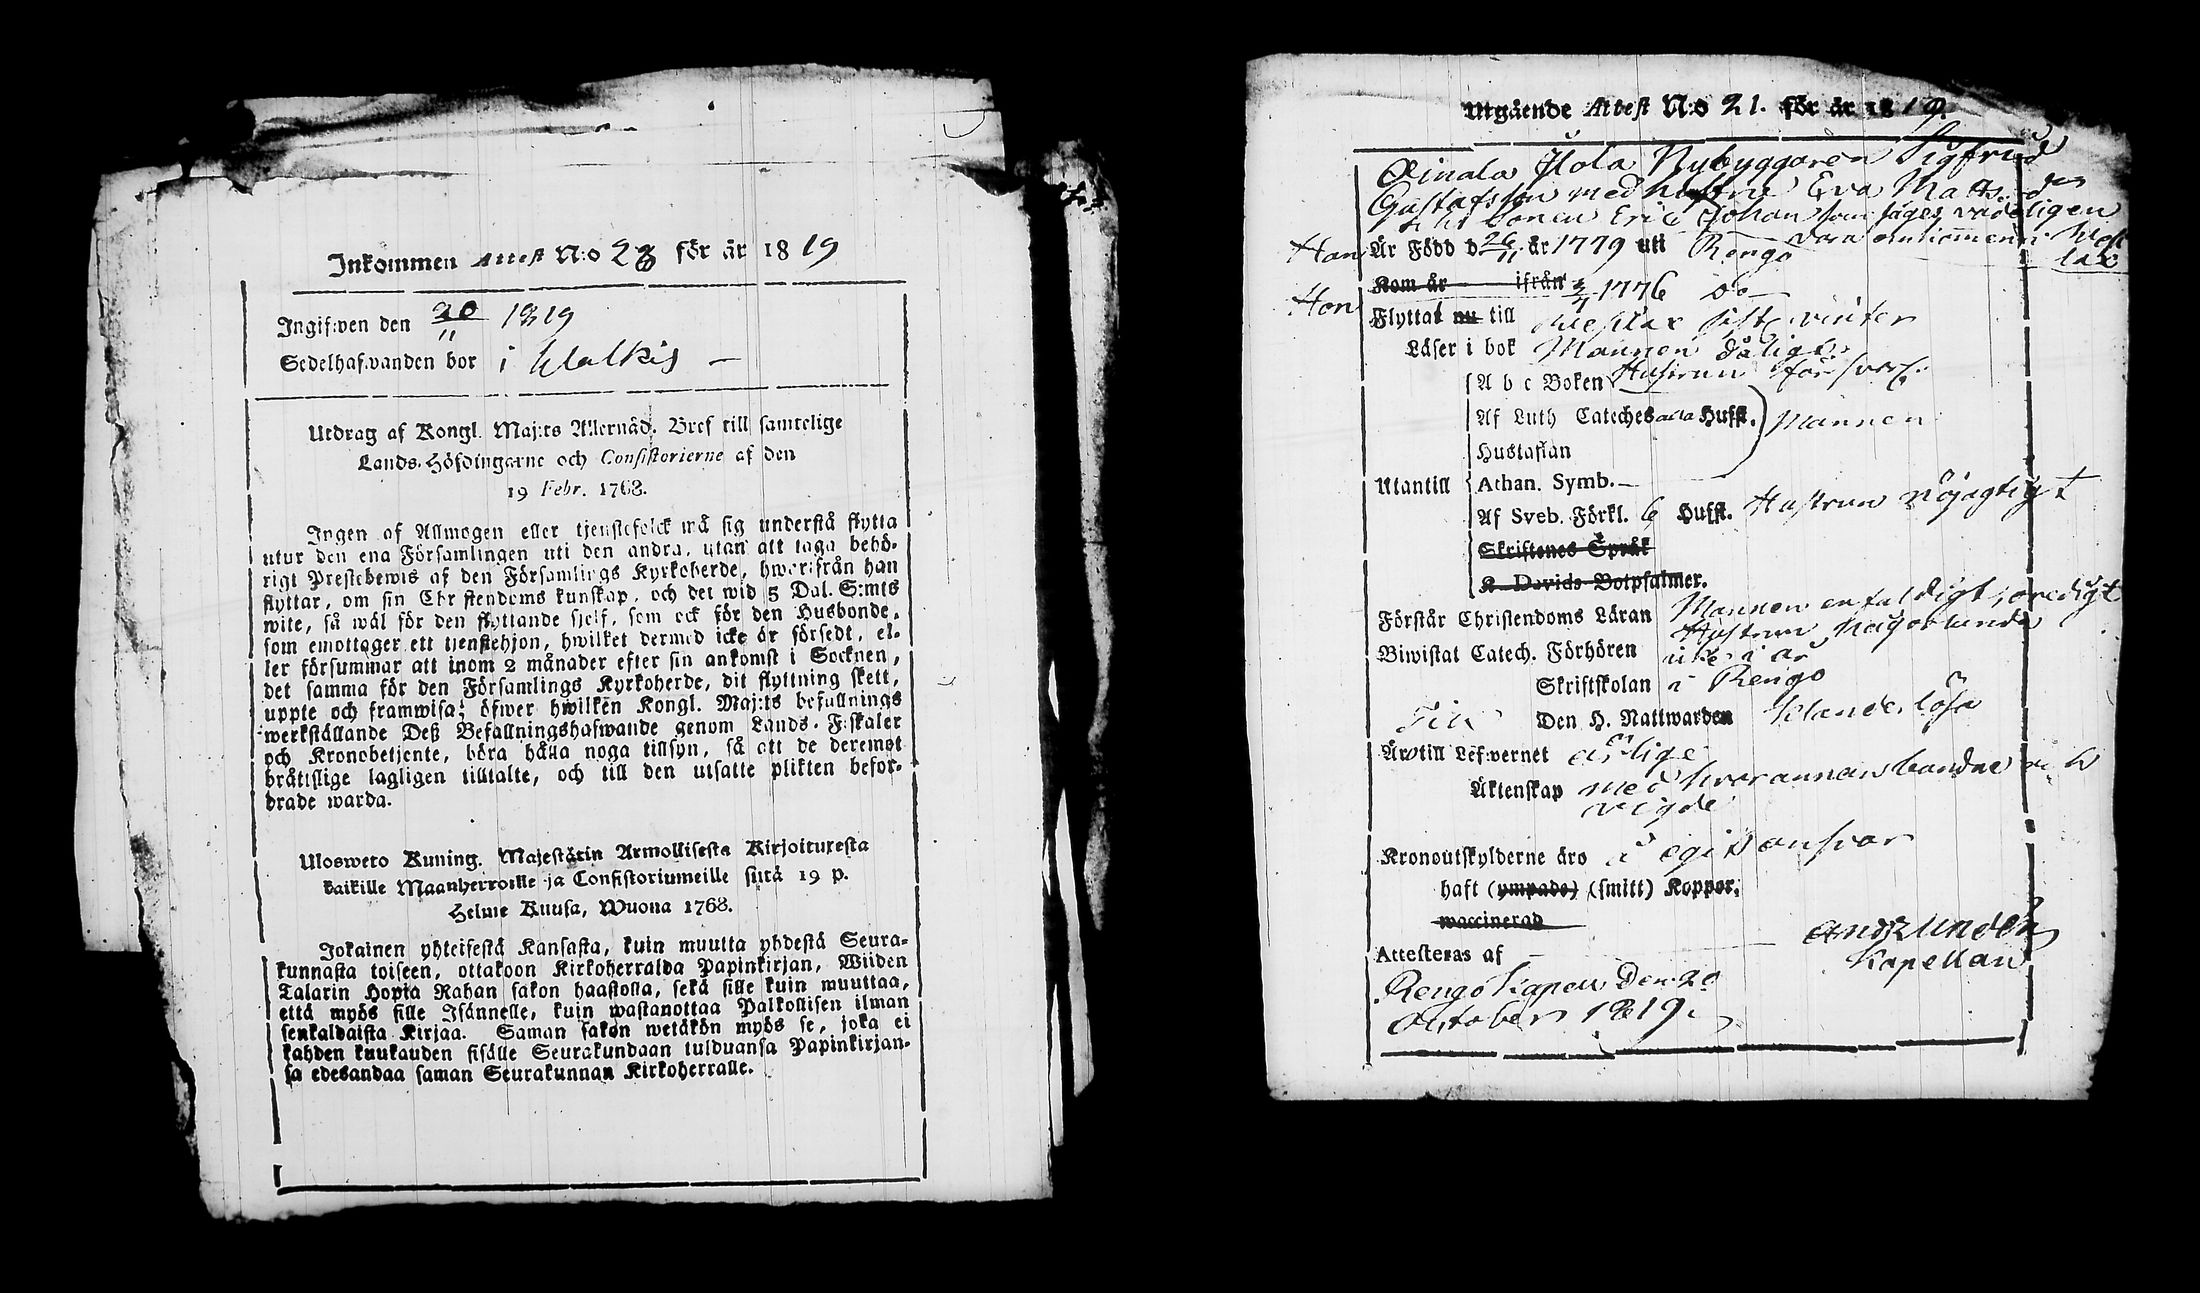 Inkommen Attest N:o 28 för år 1819
Ingifwen den 20/11 1819
Sedelhafwanden bor i Walkis –
Utdrag af Kongl. Maj:ts Allernåd. Bref till samtelige
Lands-Höfdingarne och Consistorierne af den
19 Febr. 1768.
Ingen af Allmogen eller tjenstefolck må sig understå flytta
utur den ena Församlingen uti den andra, utan att taga behö-
rigt Prestebewis af den Församlings Kyrkoherde, hwarifrån han
flyttar, om sin Christendoms kunskap, och det wid 5 Dal. S:mts
wite, så wäl för den flyttande sjelf, som ock för den Husbonde,
som emottager ett tjenstehjon, hwilket dermed icke är försedt, el-
ler försummar att inom 2 månader efter sin ankomst i Socknen,
det samma för den Församlings Kyrkoherde, dit flyttning skett,
uppte och framwisa; öfwer hwilken Kongl. Maj:ts befallnings
werkställande Deß Befallningshafwande genom Lands-Fiskaler
och Kronobetjente, böra hålla noga tillsyn, så att de deremot
bråttslige lagligen tilltalte, och till den utsatte plikten befor-
drade warda.
Ulosweto Kuning. Majestätin Armollisesta Kirjoituxesta
kaikille Maanherroille ja Consistoriumeille siitä 19 p.
Helme Kuusa, Wuona 1768.
Jokainen yhteisestä Kansasta, kuin muutta yhdestä Seura-
kunnasta toiseen, ottakoon Kirkoherralda Papinkirjan, Wiiden
Talarin Hopia Rahan sakon haastolla, sekä sille kuin muuttaa,
että myös sille Isännelle, kuin wastanottaa Palkollisen ilman
senkaldaista Kirjaa. Saman sakon wetäkön myös se, joka ei
kahden kuukauden sisälle Seurakundaan tulduansa Papinkirjan-
sa edesandaa saman Seurakunnan Kirkoherralle.
Utgående Attest N:o 21. för år 1819.
Oinala Ilola Nybyggaren Sigfrid
Gustafsson med hustru Eva Matts. der
Sonen Eric Johan som säges vådeligen
vara omkommen i West
lax
Han Är Född d 26/11 år 1779 uti Rengo
Kom år ifrån
Hon 2/7 1776 do
Flyttat nu till Westlax sistl. vinter
Läser i bok Mannen dåligt
A b c Boken Hustrun försvarl.
Af Luth Cateches alla Huffst. Mannen
Hustaflan
Utantill Athan. Symb. –
Af Sveb. Förkl. 6 Huffst. Hustrun nöjagtigt
Skriftenes Språk
K. Davids Botpsalmer.
Förstår Christendoms Läran Mannen enfaldigt, oredigt
Hustrun någorlunda
Biwistat Catech. Förhören icke i år
Skriftskolan i Rengo
Den H. Nattwarden klanderlösa
Är till Lefwernet ärlige
Äktenskap med hvarannan bandne och
vigde
Kronoutskylderne äro i eget ansvar
haft (ympade) (smitt) Koppor,
waccinerad
Attesteras af
And. Lundén
Kapellan
Rengo Kapell Den 20
October 1819.